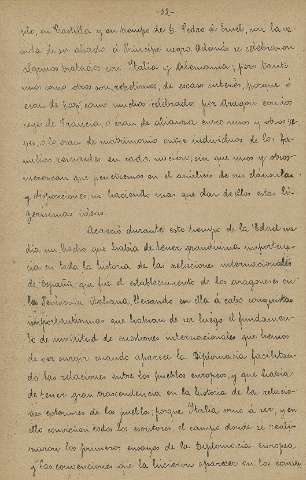 -32-
pio, en Castilla y en tiempo de D. Pedro el Cruel, con la ve
nida de su aliado el Príncipe negro. Además se celebraron
algunos tratados con Italia y Alemania; pero tanto
unos como otros son, repetimos, de escaso interés, porque ó
eran de paz, como muchos celebrados por Aragón con los
reyes de Francia, ó eran de alianza entre unos y otros re-
yes, ó lo eran de matrimonio entre individuos de las fa-
milias reinantes en cada nación, sin que unos y otros
merezcan que penetremos en el análisis de sus cláusulas
y disposiciones, no haciendo más que dar de ellos estas li-
gerísimas ideas.
Acaeció durante este tiempo de la Edad me
dia, un hecho que había de tener grandísima importan-
cia en toda la historia de las relaciones internacionales
de España, que fué el establecimiento de los aragoneses en
la Península italiana, llevando en ella á cabo conquistas
importantísimas que habían de ser luego el fundamen-
to de multitud de cuestiones internacionales que hemos
de ver surgir cuando aparece la Diplomacia facilitan-
do las relaciones entre los pueblos europeos, y que había
de tener gran trascendencia en la historia de la relacio-
nes exteriores de los pueblos, porque Italia vino á ser, y en
ello convienen todos los escritores, el campo donde se reali-
zaron los primeros ensayos de la Diplomacia europea,
y las convenciones que la hicieron aparecer en los comien